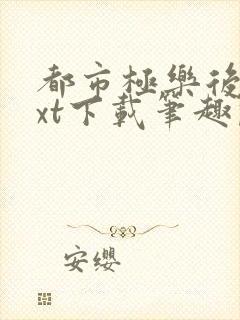 都市極樂後
xt下載筆趣
安纓